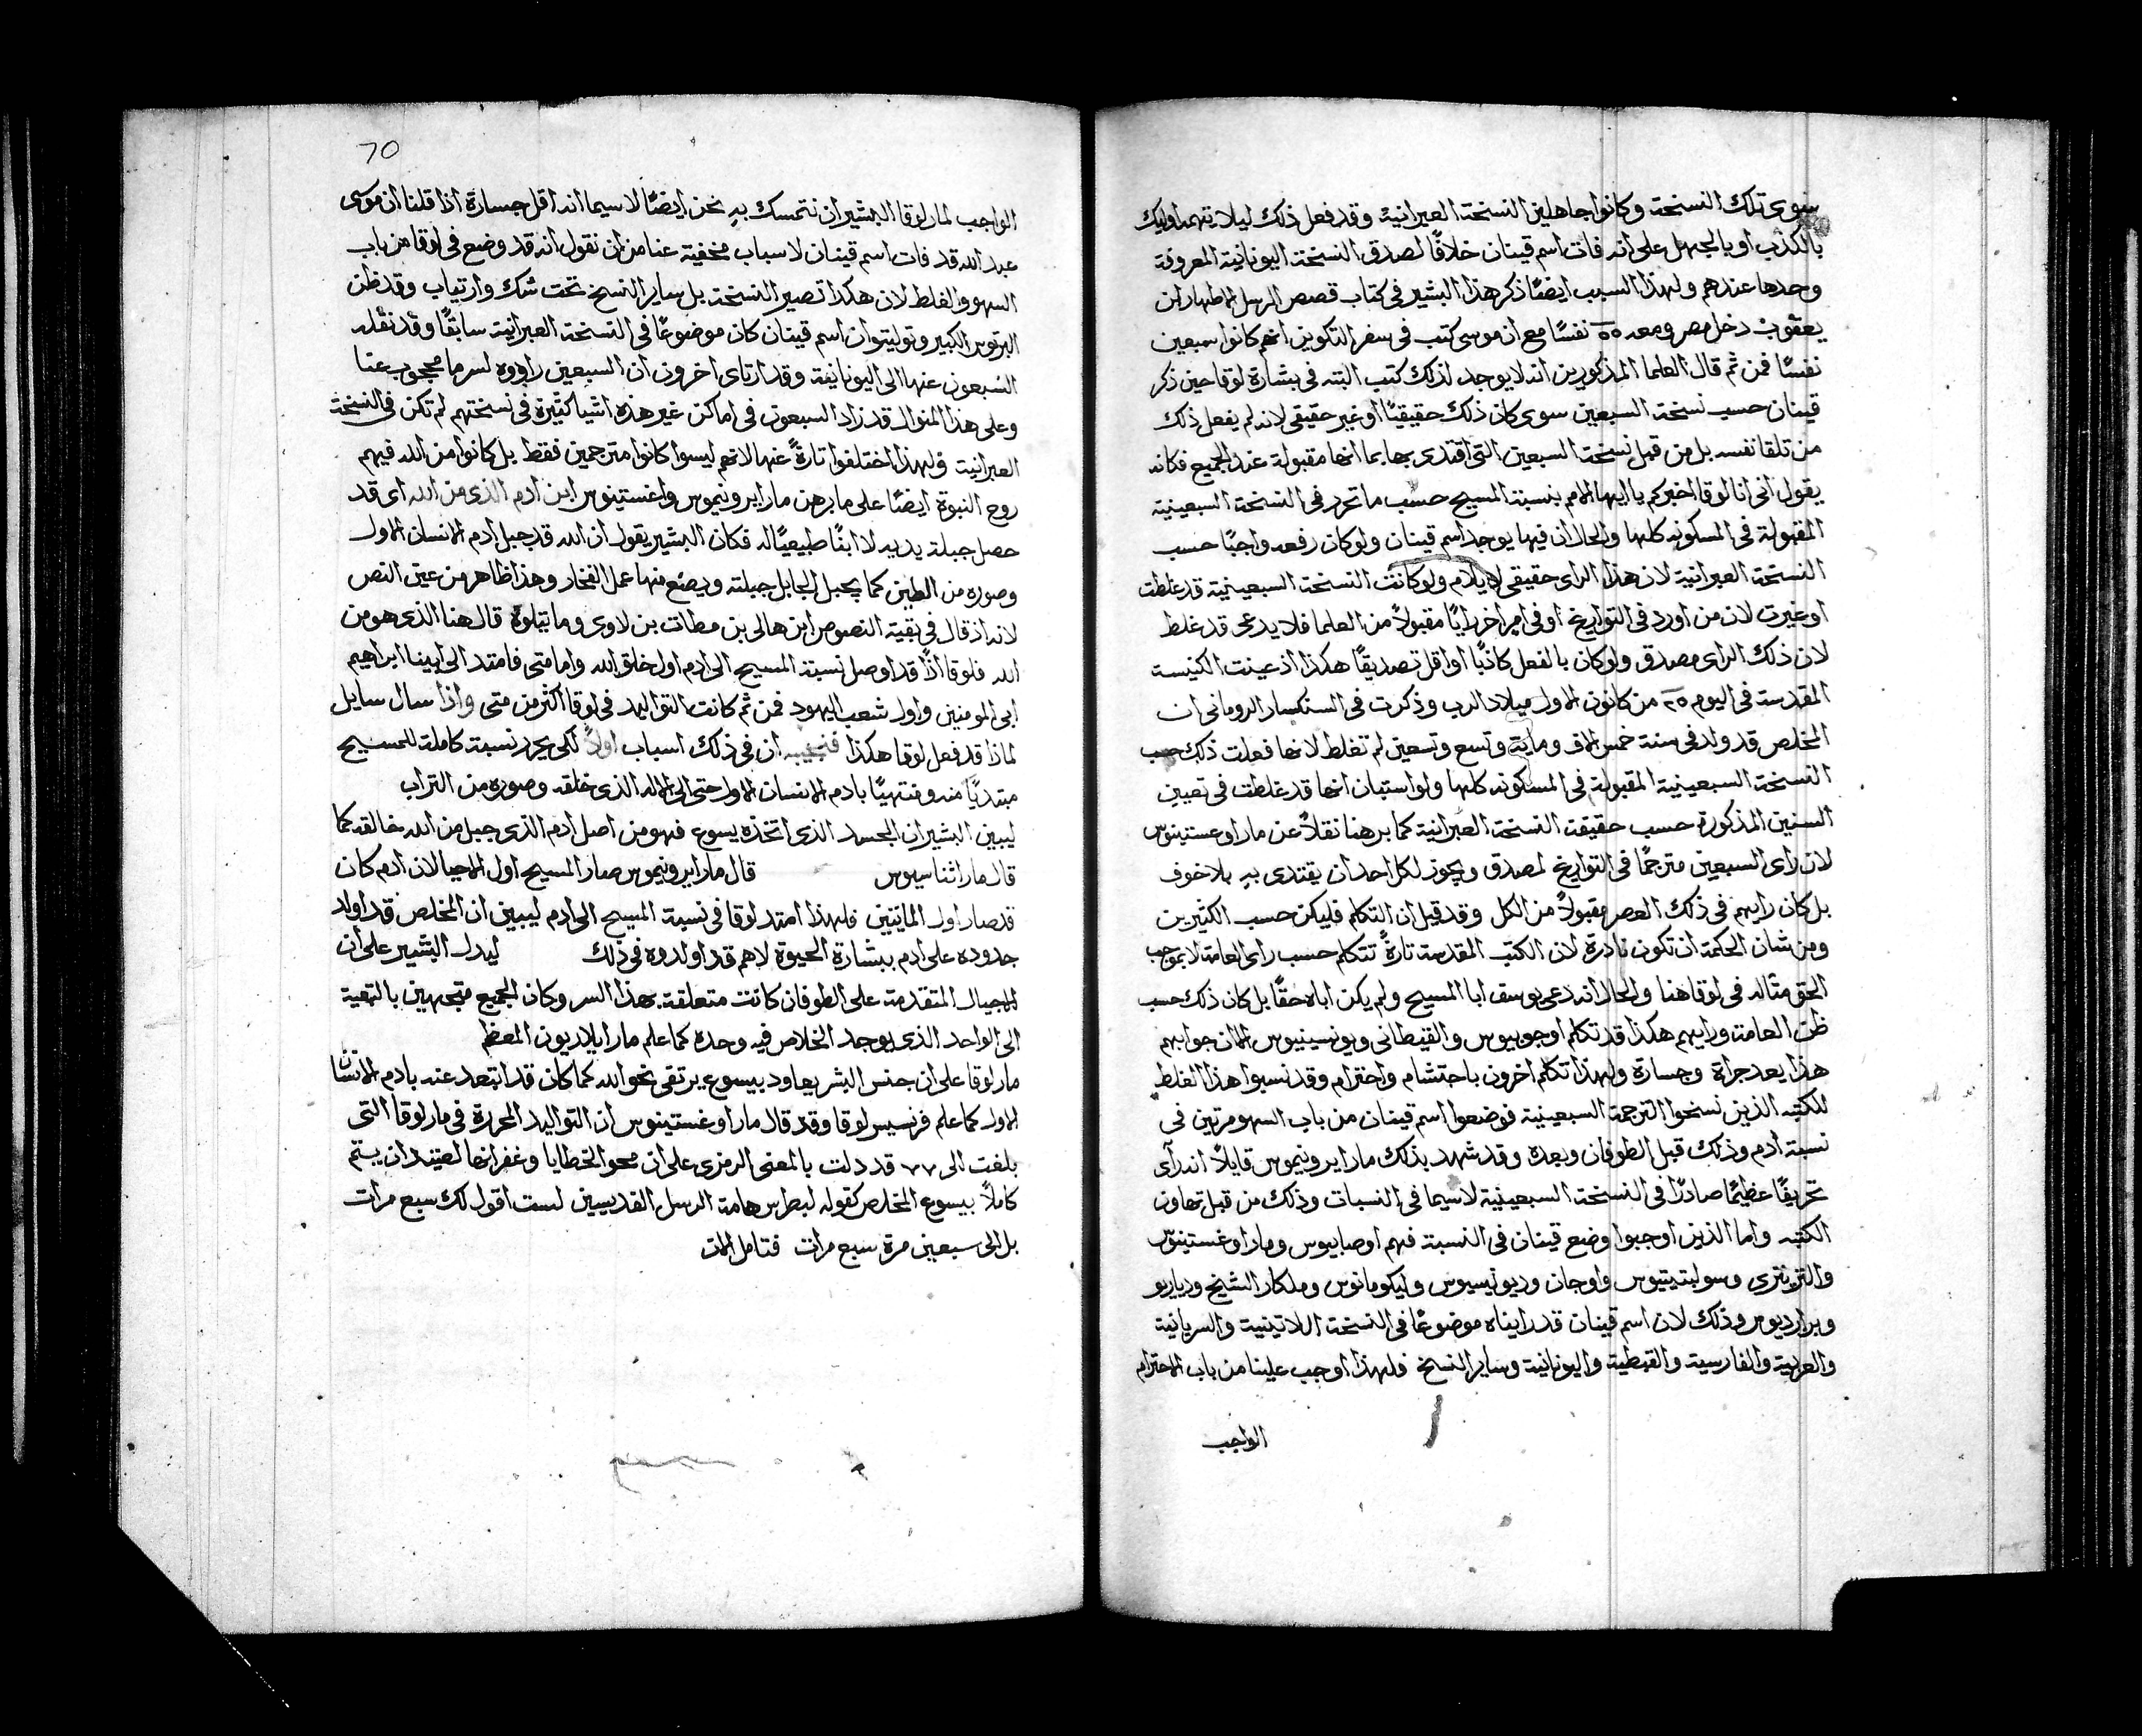 سوى تلك النسخة وكانوا جاهلين النسخة العبرانية وقد فعل ذلك ليلا يتهموا وليك
بالكذب او بالجهل على انه فات اسم قينان خلافًا لصدق النسخة اليونانية المعروفة
وحدها عندهم ولهذا السبب ايضًا ذكر هذا البشير في كتاب قصص الرسل الاطهار ان
يعقوب دخل مصر ومعه ٥٥ نفسًا مع ان موسى كتب في سفر التكوين انهم كانوا سبعين
نفسًا فمن ثم قال العلما المذكورين انه لا يوجد لذلك كتب البته في بشارة لوقا حين ذكر
قينان حسب نسخة السبعين سوى كان ذلك حقيقيًا او غير حقيقي لانه لم يفعل ذلك
من تلقا نفسه بل من قبل نسخة السبعين التي اقتدى بها بما انها مقبولة عند الجميع فكانه
يقول اني انا لوقا اخبركم يا ايها الامم بنسبة المسيح حسب ما تحرر في النسخة السبعينية
المقبولة في المسكونه كلها والحال ان فيها يوجد اسم قينان ولو كان رفعه واجبًا حسب
النسخة العبرانية لان هذا الراى حقيقي لا يلام ولو كانت النسخة السبعينية قد غلطت
او غيرت لان من اورد في التواريخ او في امر اخر رايًا مقبولاً من العلما فلا يدعى قد غلط
لان ذلك الراى مصدق ولو كان بالفعل كاذبًا او اقل تصديقًا هكذا اذ عينت الكنيسة
المقدسة في اليوم ٢٥ من كانون الاول ميلاد الرب وذكرت في السنكسار الروماني ان
المخلص قد ولد في سنة خمس الاف وماية وتسع وتسعين لم تغلط لانها فعلت ذلك حسب
النسخة السبعينية المقبولة في المسكونه كلها ولو استبان انها قد غلطت في تعيين
السنين المذكورة حسب حقيقة النسخة العبرانية كما برهنا نقلاً عن مار اوغستينوس
لان راى السبعين مترجمًا في التواريخ لمصدق ويجوز لكل احد ان يقتدى به بلا خوف
بل كان رايهم في ذلك العصر مقبولاً من الكل وقد قيل ان التكلم فليكن حسب الكثيرين
ومن شان الحكمة ان تكون نادرة لان الكتب المقدسة تارةً تتكلم حسب راى العامة لا بموجب
الحق مثاله في لوقا هنا والحال انه دعى يوسف ابا المسيح ولم يكن اباه حقًا بل كان ذلك حسب
ظن العامة ورايهم هكذا قد تكلم اوجوبيوس والقيطاني ويونسينيوس الا ان جوابهم
هذا يعد جراة وجسارة ولهذا تكلم اخرون باحتشام واحترام وقد نسبوا هذا الغلط
للكتبه الذين نسخوا الترجمة السبعينية فوضعوا اسم قينان من باب السهو مرتين في
نسبة آدم وذلك قبل الطوفان وبعده وقد شهد بذلك مار ايرونيموس قايلاً انه رآى
تحريفًا عظيمًا صادرًا في النسخة السبعينية لاسيما في النسبات وذلك من قبل تهاون
الكتبه واما الذين اوجبوا وضع قينان في النسبة فهم اوصابيوس ومار اوغستينوس
والتزينتري وسوليتيتيوس واوجان وديونيسيوس وليكومانوس وملكار الشيخ ودياريو
وبراديوس وذلك لان اسم قينان قد رايناه موضوعًا في النسخة اللاتينية والسريانية
والعربية والفارسية والقبطية واليونانية وساير النسخ فلهذا اوجب علينا من باب الاحترام
الواجب
70
الواجب لمار لوقا البشير ان نتمسك به نحن ايضًا لاسيما انه اقل جسارة اذا قلنا ان موسى
عبد الله قد فات اسم قينان لاسباب مخفية عنا من ان نقول انه قد وضع في لوقا من باب
السهو والغلط لان هكذا تصير النسخة بل ساير النسخ تحت شك وارتياب وقد ظن
البرتوس الكبير وتوليتو ان اسم قينان كان موضوعًا في النسخة العبرانية سابقًا وقد نقله
السبعون عنها الى اليونانية وقد ارتاى اخرون ان السبعين راووه لسر ما محجوب عنا
وعلى هذا المنوال قد زاد السبعون في اماكن غير هذه اشيا كثيرة في نسختهم لم تكن في النسخة
العبرانية ولهذا اختلفوا تارةً عنها لانهم ليسوا كانوا مترجمين فقط بل كانوا من الله فيهم
روح النبوة ايضًا على ما برهن مار ايرونيموس واغستينوس ابن ادم الذي من الله اى قد
حصل جبلة يديه لا ابنًا طبيعيًا له فكان البشير يقول ان الله قد جبل ادم الانسان الاول
وصوره من الطين كما يجبل الجابل جبلته ويصنع منها عمل الفخار وهذا ظاهر من عين النص
لانه اذ قال في بقية النصوص ابن هالي بن مطات بن لاوى وما يتلوه قال هنا الذى هو من
الله فلوقا اذًا قد اوصل نسبة المسيح الى ادم اول خلق الله واما متى فامتد الى ابينا ابراهيم
ابى المومنين واول شعب اليهود فمن ثم كانت التواليد في لوقا اكثر من متى واذا سال سايل
لماذا قد فعل لوقا هكذا فنجيبه ان في ذلك اسباب اولاً لكى يحرر نسبة كاملة للمسيح
مبتديًا منه ومنتهيًا بادم الانسان الاول حتى الى الاله الذى خلقه وصوره من التراب
ليبين البشير ان الجسد الذى اتخذه يسوع فهو من اصل ادم الذى جبل من الله خالقه كما
قال مار اثناسيوس قال مار ايرونيموس صار المسيح اول الاحيا لان ادم كان
قد صار اول المايتين فلهذا امتد لوقا في نسبة المسيح الى ادم ليبين ان المخلص قد اولد
جدوده على ادم ببشارة الحيوة لا هم قد اولدوه في ذلك ليدل البشير على ان
الاجيال المتقدمة على الطوفان كانت متعلقة بهذا السر وكان الجميع متجهين بالتهية
الى الواحد الذى يوجد الخلاص فيه وحده كما علم مار ايلاريون المعظم
مار لوقا على ان جنس البشر يعاود بيسوع يرتقى نحو الله كما كان قد ابتعد عنه بادم الانسان
الاول كما علم فرنسيس لوقا وقد قال مار اوغستينوس ان التواليد المحررة في مار لوقا التى
بلغت الى ٧٧ قد دلت بالمعنى الرمزى على ان محو الخطايا وغفرانها لعتيد ان يتم
كاملاً بيسوع المخلص كقوله لبطرس هامة الرسل القديسين لست اقول لك سبع مرات
بل الى سبعين مرة سبع مرات فتامل الات